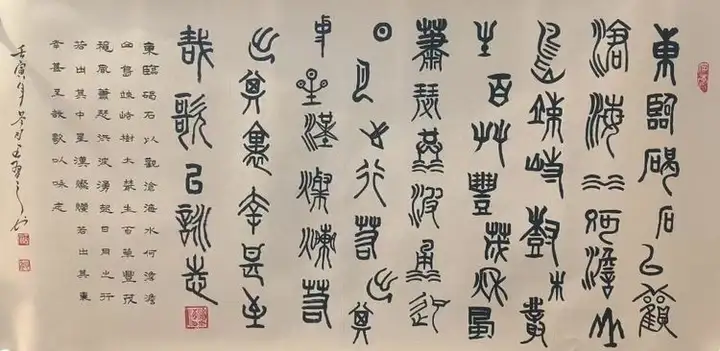 東臨碣石以觀
滄海水何澹山
島竦峙樹木叢
生百艸豐茂秌風
蕭瑟洪波涌起
日月之行若出其
中星漢燦爛若
出其裏幸甚至
哉歌以詠志
東臨碣石以觀滄海水何澹澹
山島竦峙樹木叢生百草豐茂
穐風蕭瑟洪波湧起日月之行
若出其中星漢燦爛若出其裏
幸甚至哉歌以咏志
壬寅年